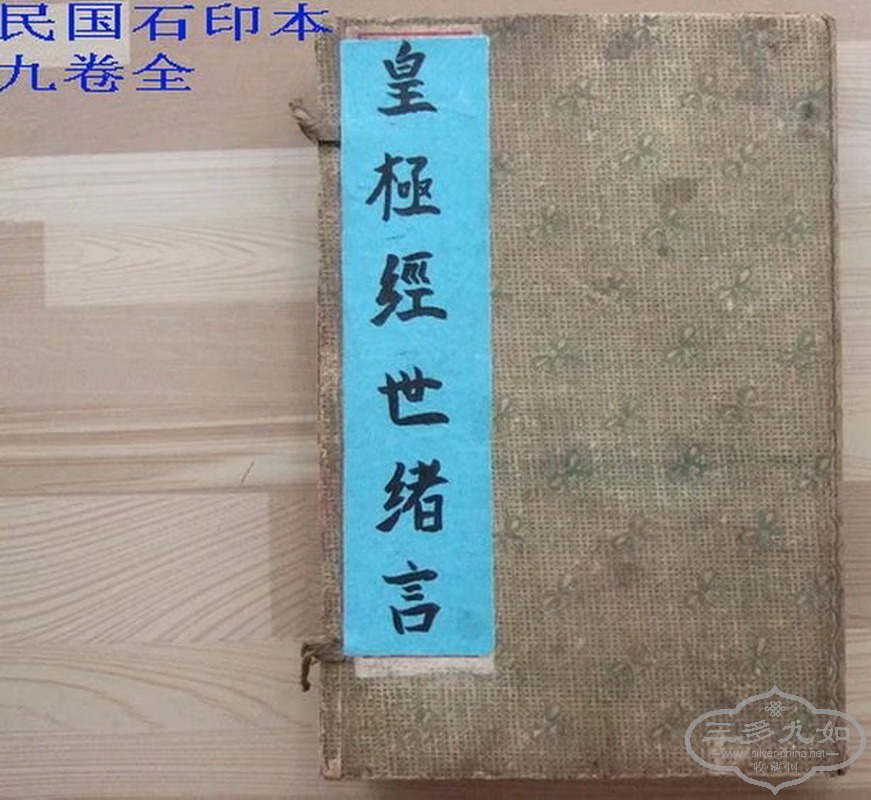 民国石印本
九卷全
皇極經世绪言
三多九如
www.silver-china.net
收藏网